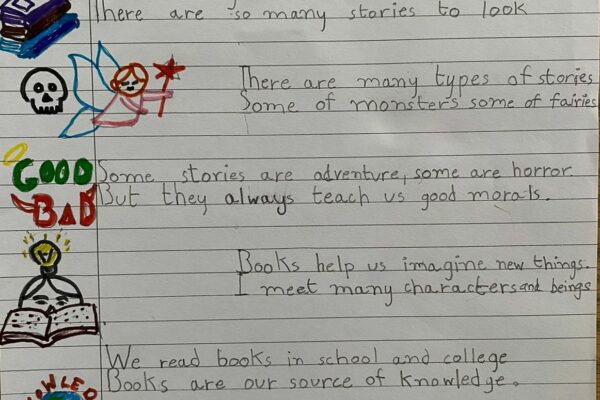 There are so many stories to look
There are many types of stories
Some of monsters some of fairies
GOOD
BAD
Some stories are adventure, some are horror.
But they always teach us good morals.
Books help us imagine new things.
I meet many characters and beings
We read books in school and college
Books are our source of knowledge.